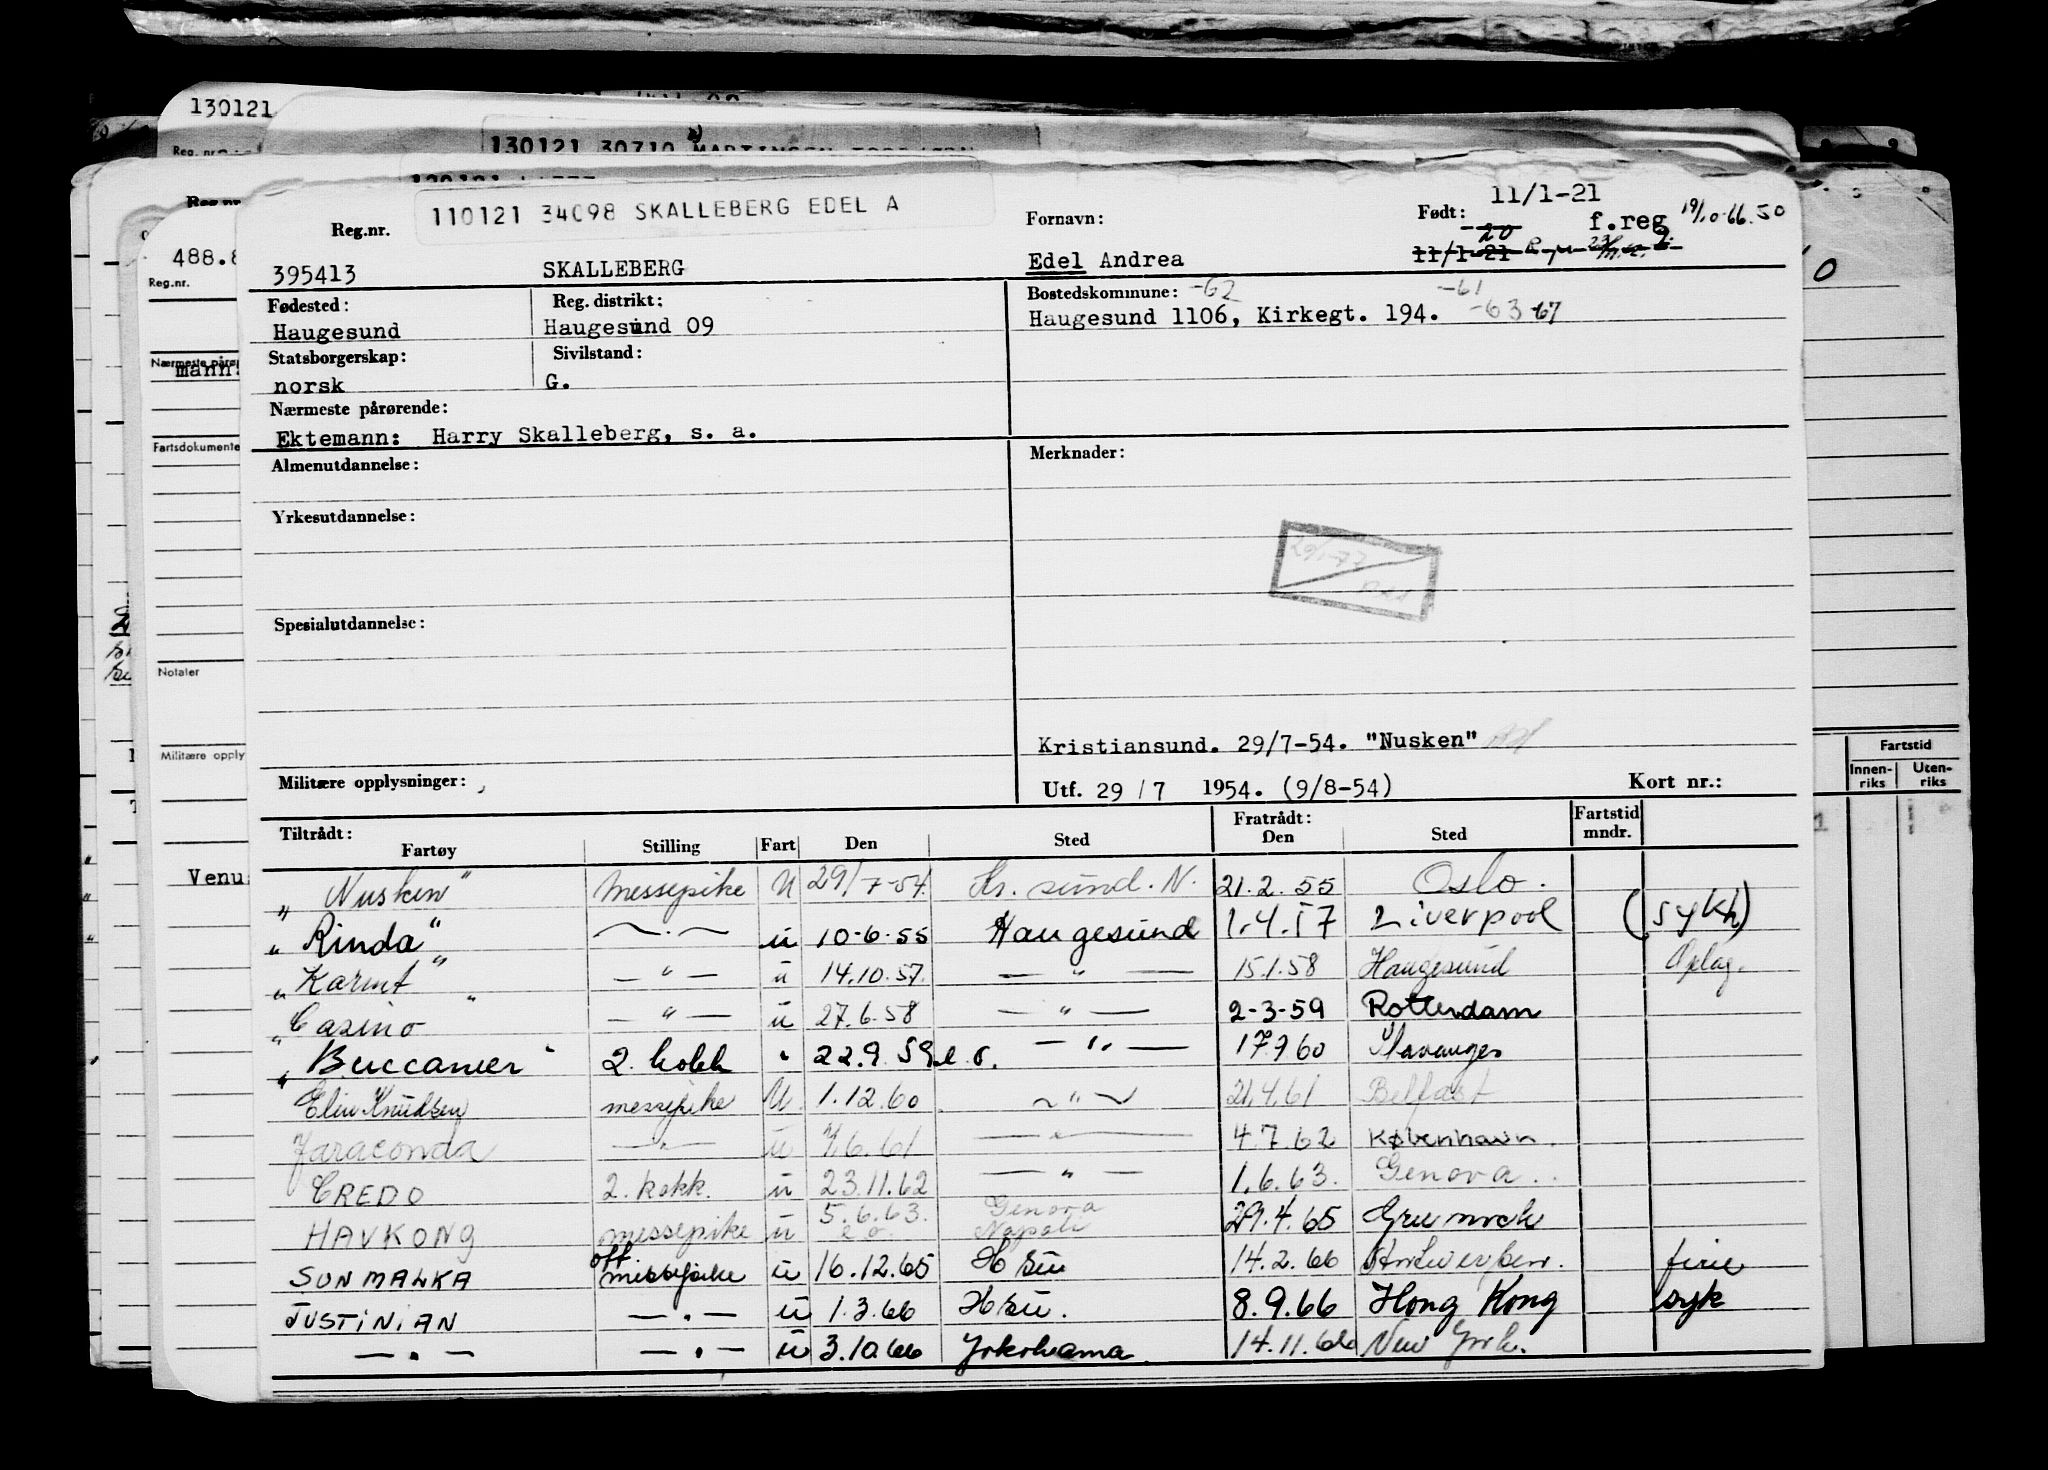 130121
Reg. nr
130121 30710 MARTINSEN
Reg. nr.
488.8
Reg.nr.
Nærmeste pårør
mann.
Fartsdokumente
Notater
Militære opply
Venu
Fartstid
Innen-riks Uten-riks
110121 34098 SKALLEBERG EDEL A
Reg.nr. Fornavn: Født: 11/1-21
20 f.reg 19/10-66.50
11/1-21
395413 SKALLEBERG Edel Andrea
Fødested: Reg. distrikt: Bostedskommune: -62 -61
Haugesund Haugesund 09 Haugesund 1106, Kirkegt. 194. -63 -67
Statsborgerskap: Sivilstand:
norsk G.
Nærmeste pårørende:
Ektemann: Harry Skalleberg, s. a.
Almenutdannelse: Merknader:
Yrkesutdannelse:
29/1-77
Spesialutdannelse:
Kristiansund. 29/7-54. "Nusken"
Militære opplysninger: Utf. 29/7 1954. (9/8-54) Kort nr.:
Tiltrådt: Fratrådt: Fartstid mndr.
Fartøy Stilling Fart Den Sted Den Sted
"Nusken" messepike U 29/7-54. Kr. sund. N. 21.2.55 Oslo.
"Rinda" —·— ü 10-6-55 Haugesund 1.4.57 Liverpool (sykh)
"Karmt" — " — ü 14.10.57. — " — 15.1.58 Haugesund Oplag.
"Casino" — " — ü 27.6.58 — " — 2-3-59 Rotterdam
"Buccaneer" 2. kokk " 22.9.59 e.o. — " — 17.9.60 Stavanger
Elin Knudsen messepike U. 1.12.60 — " — 21.4.61 Belfast
Jaraconda — " — ü 7.6.61 — " — 4.7.62 København.
CREDO 2. kokk. ü 23.11.62 — " — 1.6.63. Genova.
HAVKONG messepike ü 5.6.63. e.o. Genova Napoli 29.4.65 Greenock
SUNMALKA off messepike ü 16.12.65 H sü 14.2.66 Antwerpen. ferie
JUSTINIAN — " — ü 1.3.66 H sü. 8.9.66 Hong Kong syk
— " — — " — ü 3.10.66 Yokohama. 14.11.66 New York.